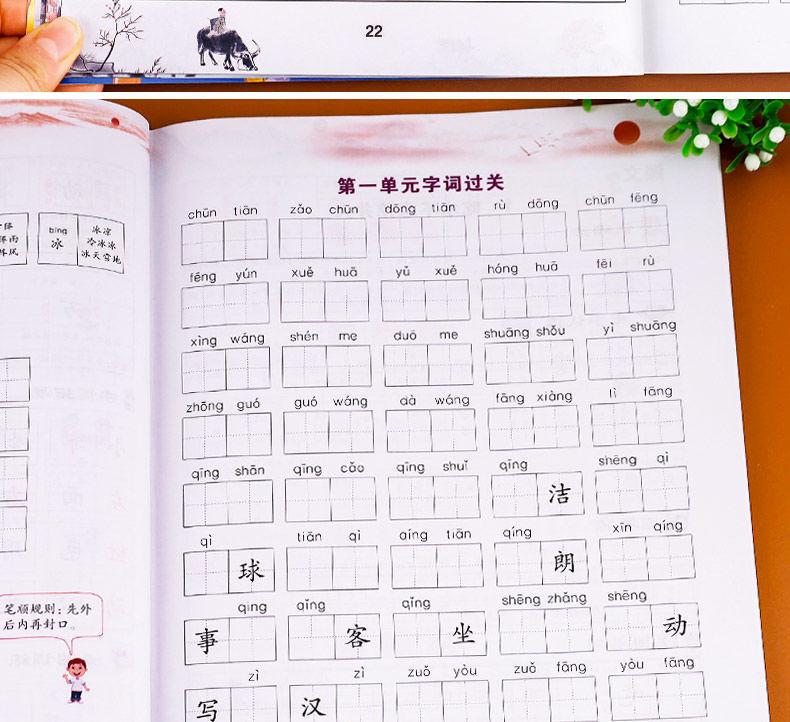 22
bīng
冰
冰凉
冷冰冰
冰天雪地
笔顺规则：先外
后内再封口。
第一单元字词过关
chūn tiān zǎo chūn dōng tiān rù dōng chūn fēng
fēng yún xuě huā yǔ xuě hóng huā fēi rù
xìng wáng shén me duō me shuāng shǒu yì shuāng
zhōng guó guó wáng dà wáng fāng xiàng lì fāng
qīng shān qīng cǎo qīng shuǐ qīng shēng qì
洁
qì tiān qì qíng tiān qíng xīn qíng
球 朗
qing qǐng qǐng shēng zhǎng shēng
事 客 坐 动
zì zì zuǒ yòu zuǒ fāng yòu fāng
写 汉